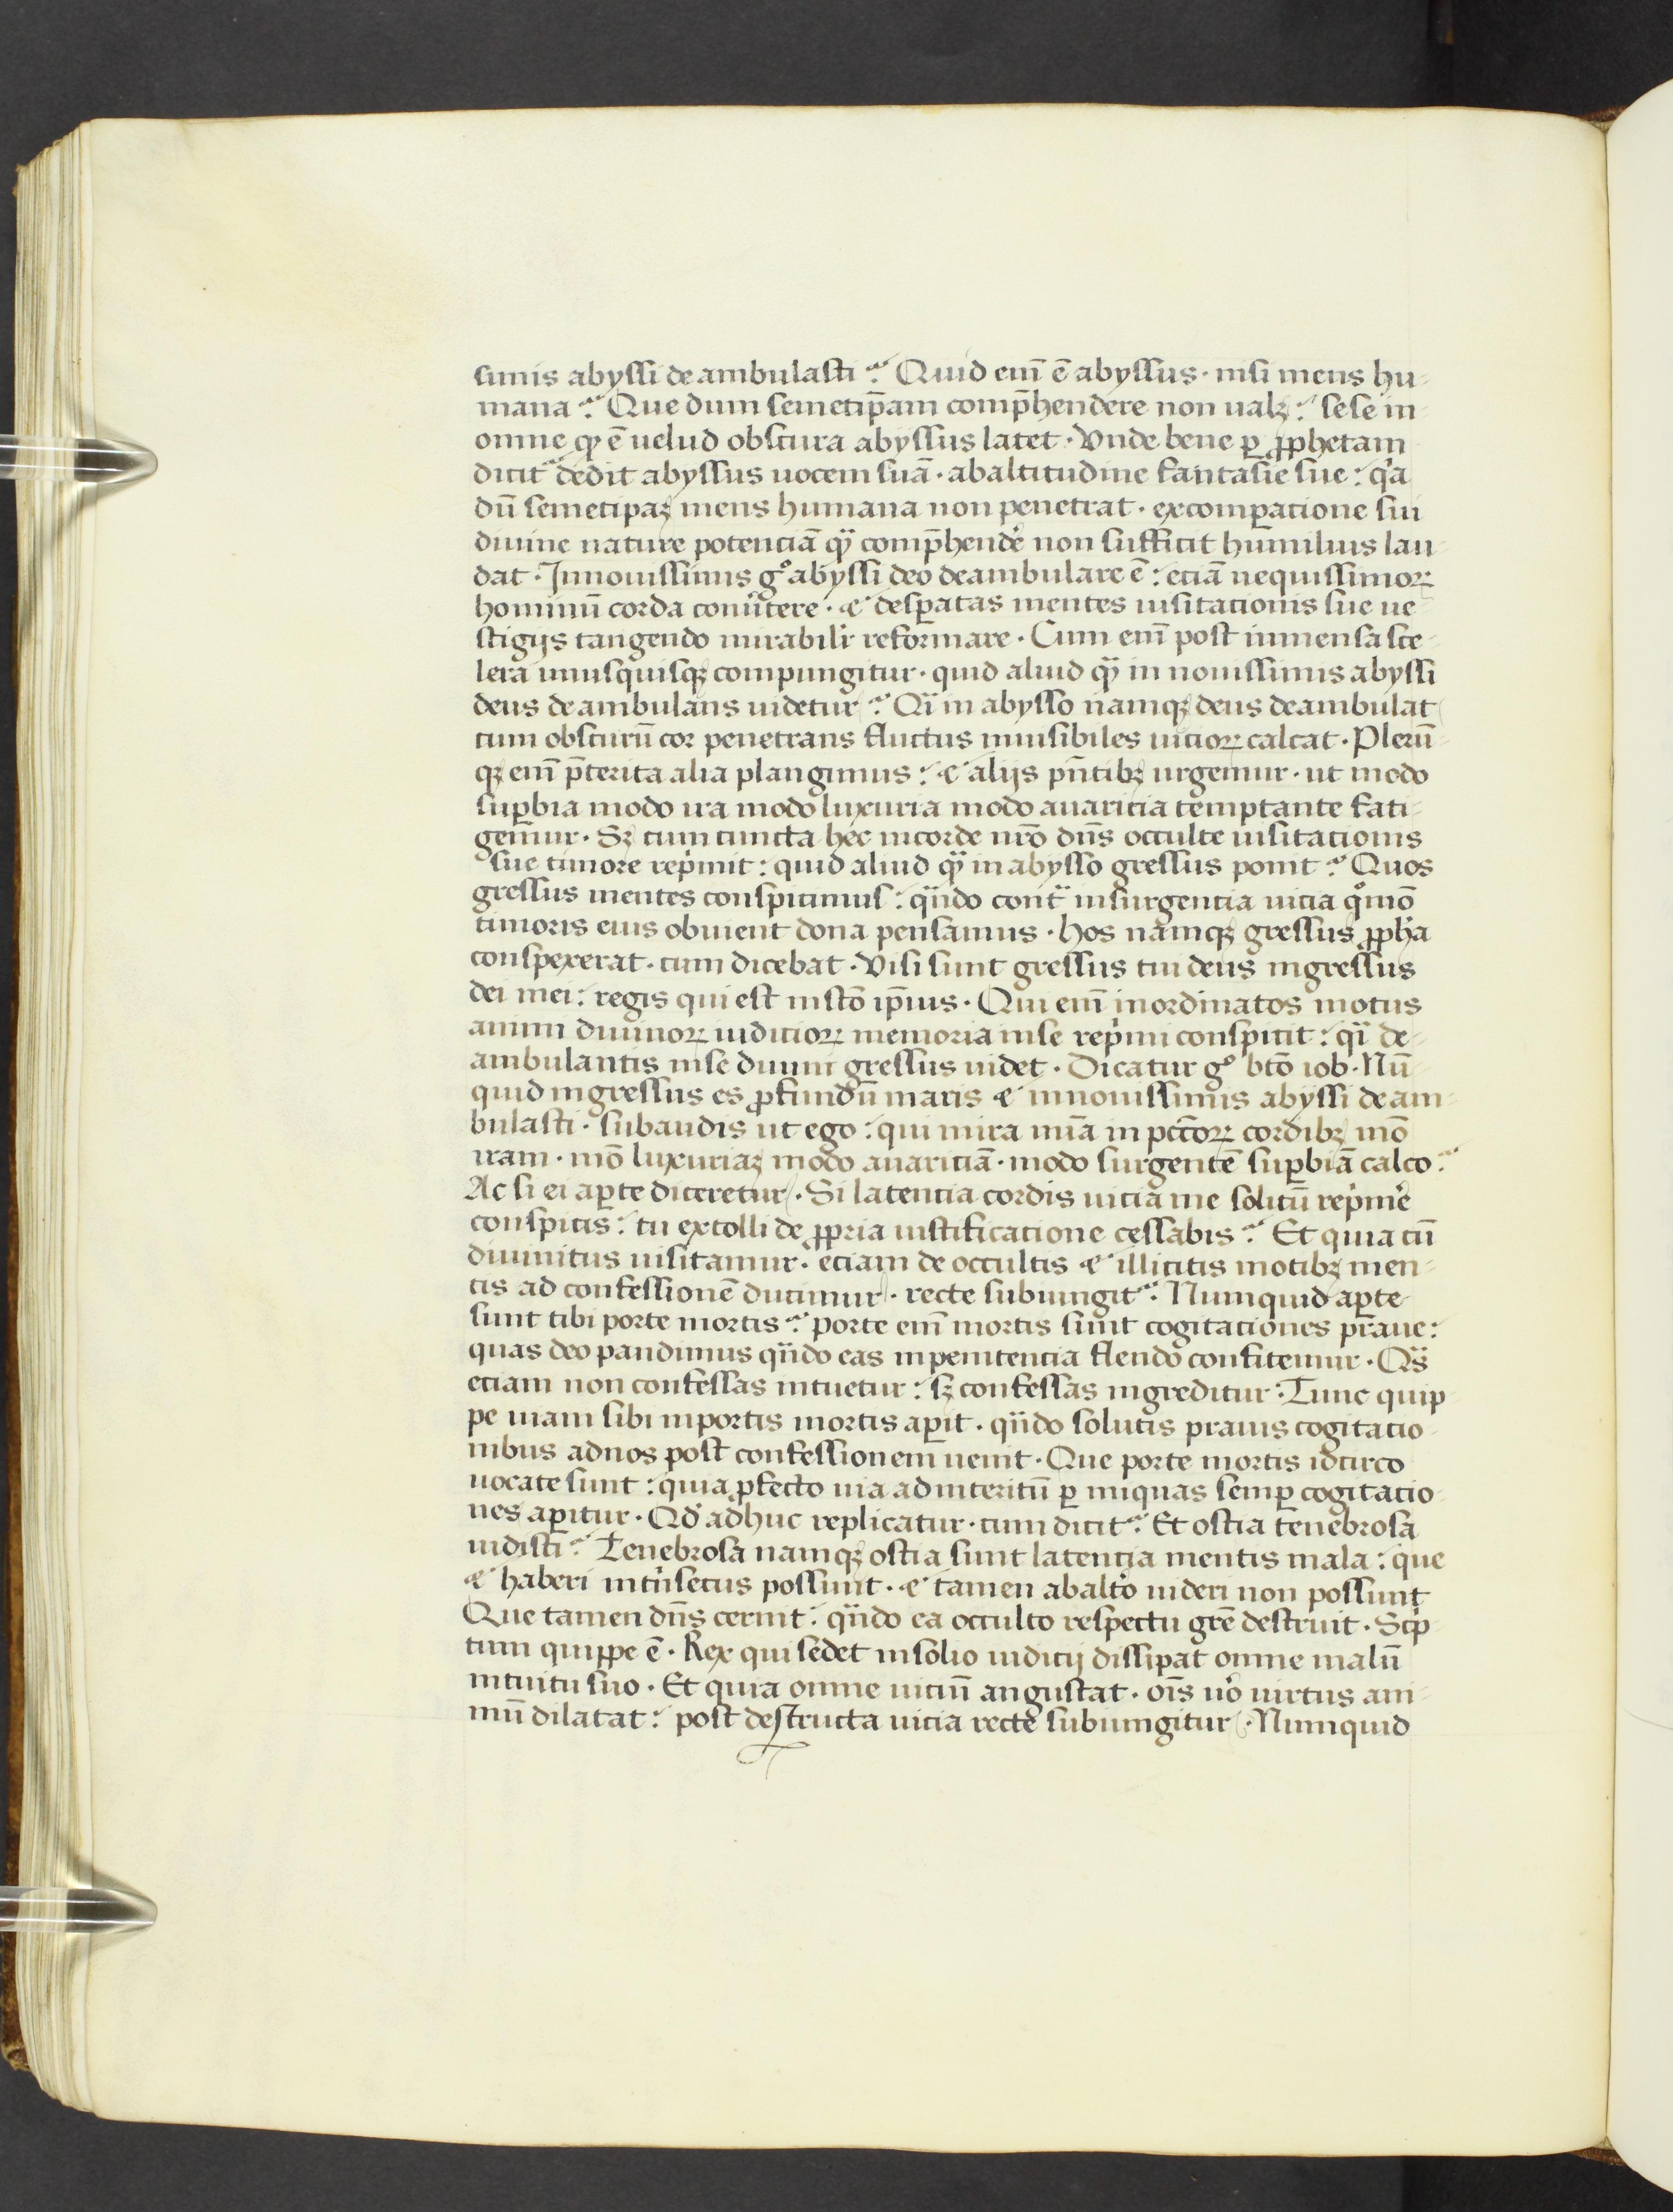 simis abyssi deambulasti? Quid eni᷑ ē abyssus · nisi mens hu-
mana? Que dum semetip̄am comp̄hendere non ualꝫ: sese in
omne qđ ē uelud obscura abyssus latet · Vnde bene ꝑ ꝓphetam
dicit᷑ dedit abyssus uocem suā · ab altitudine fantasie sue: qͥa
dū semetipaꝫ mens humana non penetrat · ex comꝑacione sui
diuine nature potenciā qͣ comp̄hendē non sufficit humilius lau-
dat · In nouissimis gͦ abyssi deo deambulare ē: eciā nequissimoꝝ
hominū corda conuͥtere · ⁊ desꝑatas mentes uisitacionis sue ue-
stigijs tangendo mirabilr̄ reformare · Cum enī post inmensa sce-
lera unusquisqꝫ compungitur · quid aliud qͣ in nouissimis abyssi
deus deambulans uidetur? Qͣ in abysso namqꝫ deus deambulat
cum obscurū cor penetrans fluctus inuisibiles uicioꝝ calcat · Plerū-
qꝫ enī p̄terita alia plangimus: ⁊ alijs pn̄tibꝫ urgemur · ut modo
suꝑbia modo ira modo luxuria modo auaricia temptante fati-
gem̄ur · Sꝫ cum cuncta hec in corde nr̄o dn̄s occulte uisitacionis
sue timore repͥmit: quid aliud qͣ in abysso gressus ponit? Quos
gressus mentes conspicimus: qͣndo contͣ insurgencia uicia qͦmō
timoris eius obuient dona pensamus · hos namqꝫ gressus ꝓphͣ
conspexerat · cum dicebat · Visi sunt gressus tui deus ingressus
dei mei: regis qui est in sc̄o ip̄ius · Qui enī inordinatos motus
animi diuinoꝝ iudicioꝝ memoria in se repͥmi conspicit: qͣ de-
ambulantis in se diuini gressus uidet · Dicatur gͦ btō iob · Nū-
quid ingressus es ꝓfundū maris ⁊ in nouissimis abyssi deam-
bulasti · subaudis ut ego: qui mira mīa in pcc̄oꝝ cordibꝫ mō
iram · mō luxuriaꝫ modo auariciā · modo surgentē suꝑbiā calco?
Ac si ei aꝑte diceretur · Si latencia cordis uicia me solitū repͥmē
conspicis: tu extolli de ꝓpria iustificacione cessabis? Et quia cū
diuinitus uisitamur · eciam de occultis ⁊ illicitis motibꝫ men-
tis ad confessionē ducimur · recte subiungit᷑ · Numquid aꝑte
sunt tibi porte mortis? porte enī mortis sunt cogitaciones praue:
quas deo pandimus qͣndo eas in penitencia flendo confitemur · Qͣs
eciam non confessas intuetur: sꝫ confessas ingreditur: Tunc quip-
pe uiam sibi in portis mortis aꝑit · qͣndo solutis prauis cogitacio-
nibus ad nos post confessionem uenit · Que porte mortis idcirco
uocate sunt: quia ꝓfecto uia ad interitū ꝑ iniquas semꝑ cogitacio-
nes aꝑitur · Qđ adhuc replicatur · cum dicit᷑ · Et ostia tenebrosa
uidisti? Tenebrosa namqꝫ ostia sunt latencia mentis mala: que
⁊ haberi intͥnsecus possunt · ⁊ tamen ab altͦo uideri non possunt
Que tamen dn̄s cernit: qͣndo ea occulto respectu grē destruit · Scͥp-
tum quippe ē · Rex qui sedet in solio iudicij dissipat omne malū
intuitu suo · Et quia omne uiciū angustat · oīs uͦo uirtus ani-
mū dilatat: post destructa uicia recte subiungitur · Numquid